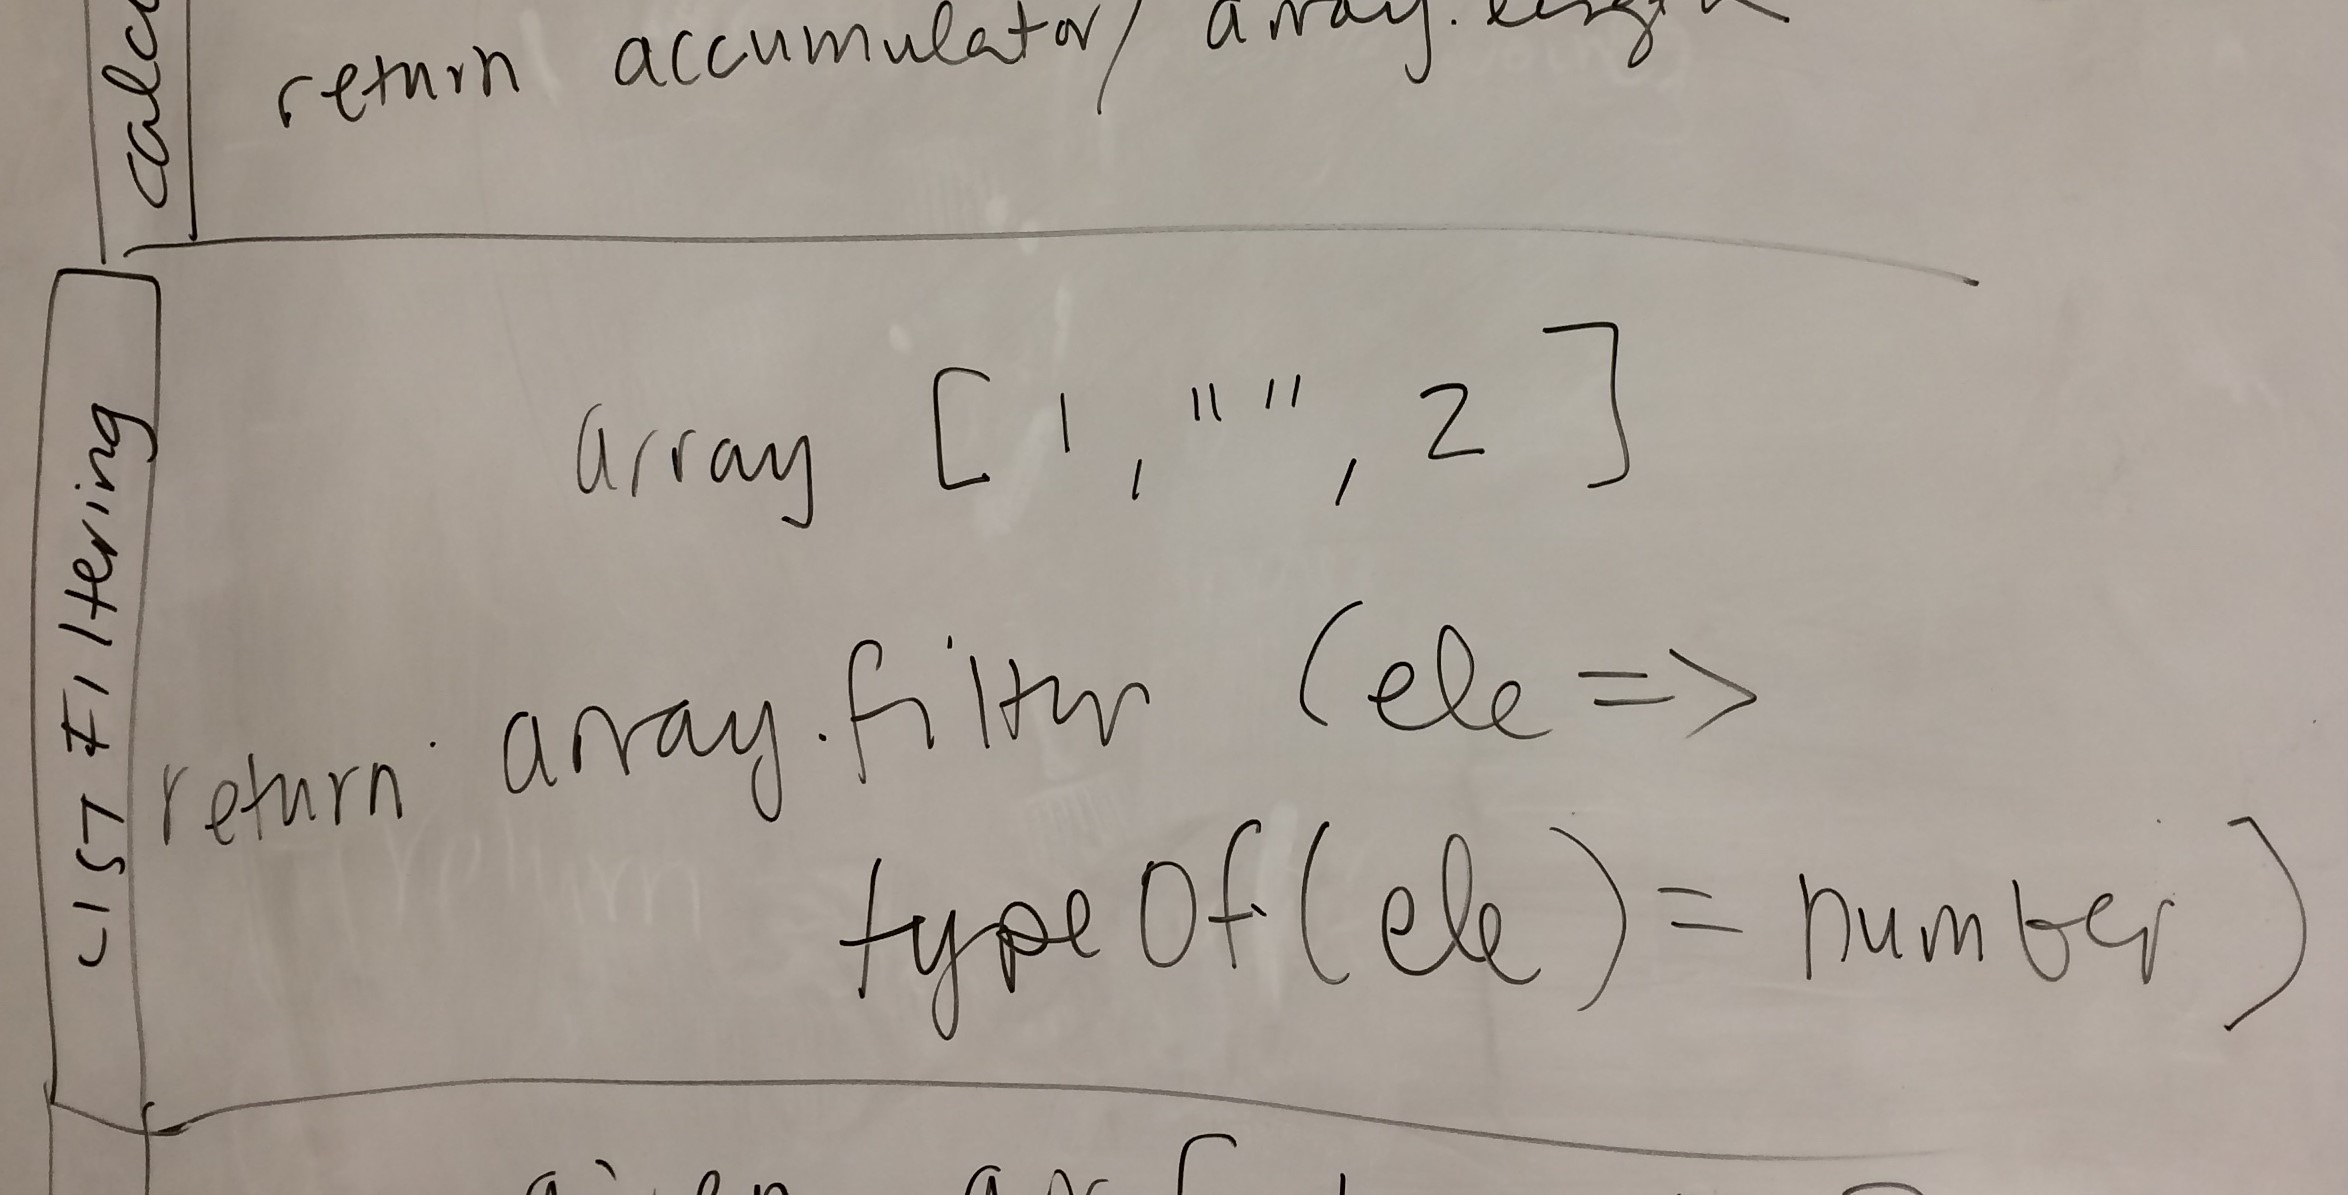 return accumulator/ array.length
LIST FIltering
array [ 1, " ", 2 ]
return array.filter (ele =>
typeOf(ele) = number)
given